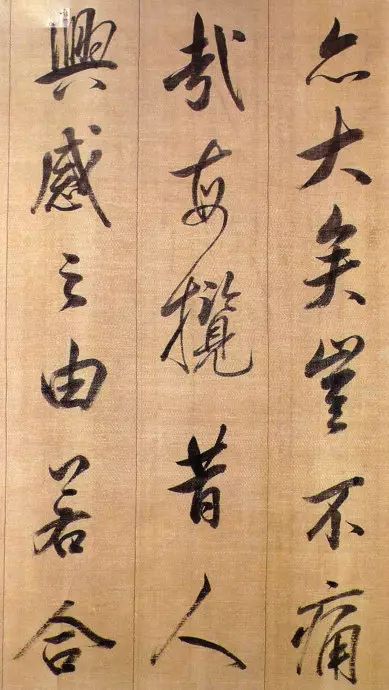 亦大矣豈不痛
哉每攬昔人
興感之由若合